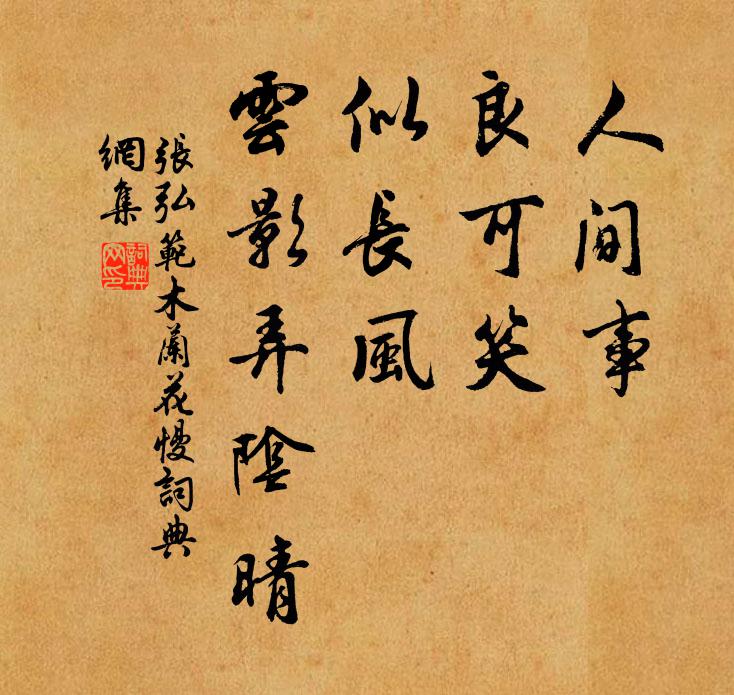 人間事
良可笑
似長風
雲影弄陰晴
張弘範木蘭花慢詞典
網集
詞典網印